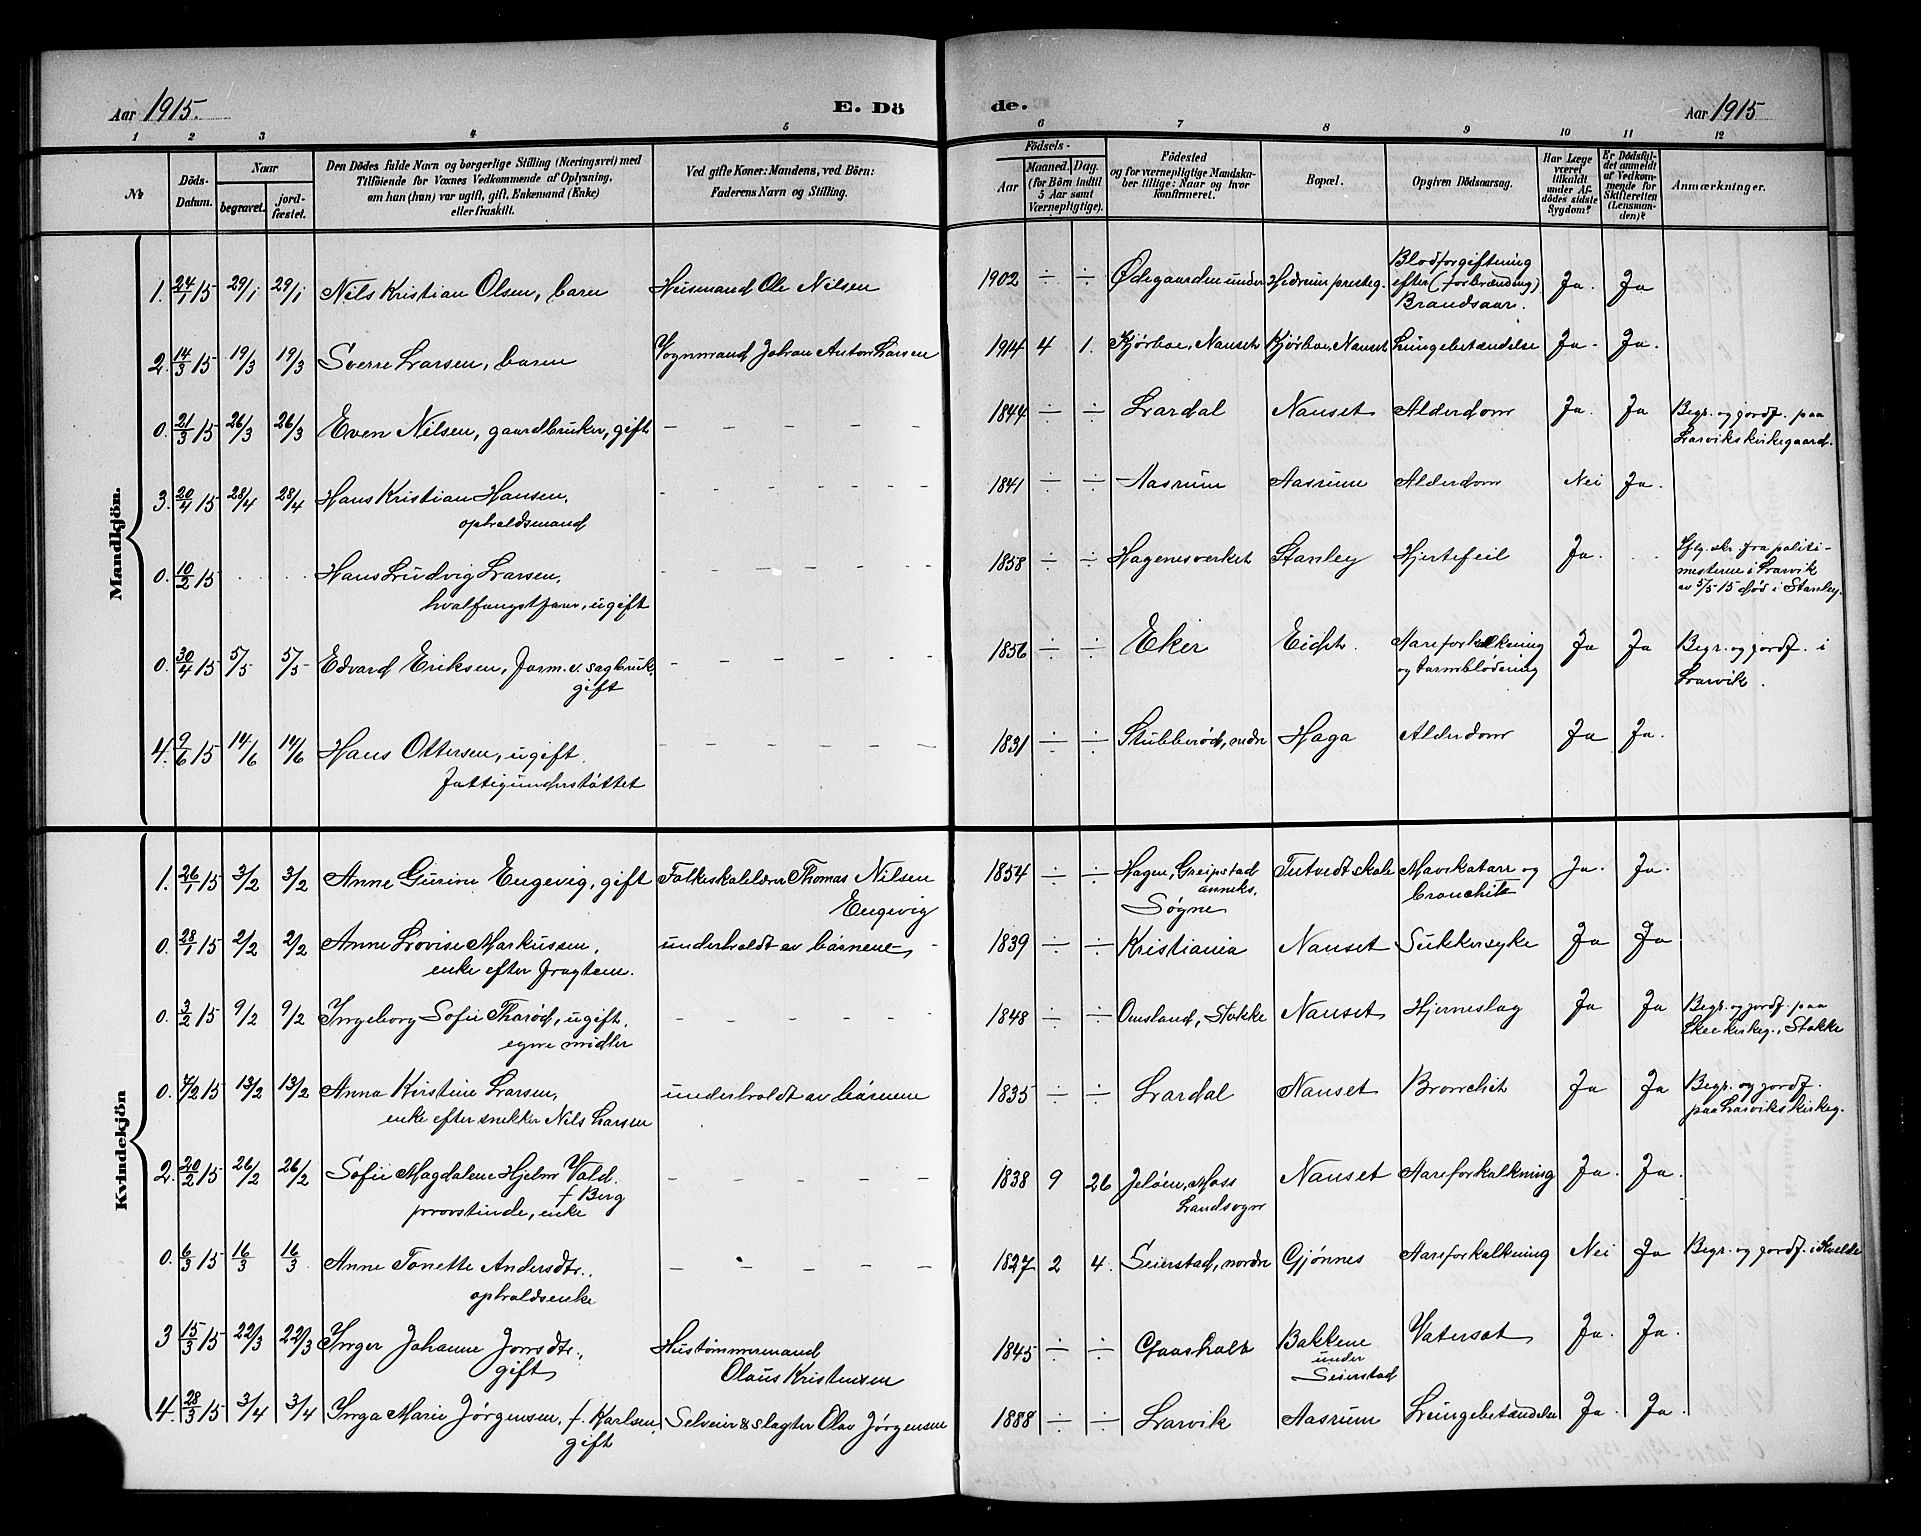 Aar 1915. E. Dö de. Aar 1915
1 2 3 4 5 6 7 8 9 10 11 12
No
Döds-Datum.
Naar
begravet.
jordfæstet.
Den Dödes fulde Navn og borgerlige Stilling (Næringsvei) med
Tilföiende for Voxnes Vedkommende af Oplysning,
om han (hun) var ugift, gift, Enkemand (Enke)
eller fraskilt.
Ved gifte Koner: Mandens, ved Börn:
Faderens Navn og Stilling.
Födsels-
Aar
Maaned. Dag.
(for Börn indtil
5 Aar samt
Værnepligtige).
Födested
og for værnepligtige Mandskaber tillige: Naar og hvor
konfirmeret.
Bopæl.
Opgiven Dödsaarsag.
Har Læge
været
tilkaldt
under Afdödes sidste
Sygdom?
Er Dödsfaldet anmeldt
af Vedkommende for
Skifteretten
(Lensmanden)?
Anmærkninger.
Mandkjön.
1. 24/1 15 29/1 29/1 Nils Kristian Olsen, barn Husmand Ole Nilsen 1902 ÷ ÷ Ødegaarden under Hedrum presteg. Blodforgiftning
efter (forbrænding)
Brandsaar. Ja. Ja
2. 14/3 15 19/3 19/3 Sverre Larsen, barn Vognmand Johan Anton Larsen 1914 4 1. Kjørboe, Nanset Kjørboe, Nanset Lungebetændelse Ja. Ja.
0. 21/3 15 26/3 26/3 Even Nilsen, gaardbruker, gift – – – – – – 1844 ÷ ÷ Lardal Nanset Alderdom Ja. Ja Begr. og jordf. paa
Larviks kirkegaard.
3. 20/4 15 28/4 28/4 Hans Kristian Hansen,
opholdsmand – – – – – – 1841 ÷ ÷ Aasrum Aasrum Alderdom Nei Ja.
0. 10/2 15 . . Hans Ludvig Larsen,
hvalfangstform, ugift – – – – – – 1858 ÷ ÷ Hagenesverket Stanley Hjertefeil Ja. . . Iflg. skr. fra politimesteren i Larvik
av 5/5 15 død i Stanley.
0. 30/4 15 5/5 5/5 Edvard Eriksen, form. v. sagbruk,
gift – – – – – – 1856 ÷ ÷ Eker Eidet. Aareforkalkning
og tarmblødning Ja Ja Begr. og jordf. i
Larvik.
4. 9/6 15 14/6 14/6 Hans Ottersen, ugift.
Fattigunderstøttet – – – – – – 1831 ÷ ÷ Stubberød, nedre Haga Alderdom Ja Ja.
Kvindekjön
1. 26/1 15 3/2 3/2 Anne Gurine Engevig, gift Folkeskolelærer Thomas Nilsen
Engevig 1854 ÷ ÷ Hagen, Greipstad
anneks.
Søgne Tutvedt skole Mavekatarr og
bronchit Ja. Ja.
0. 28/1 15 2/2 2/2 Anne Lovise Markussen,
enke efter fragtem. underholdt av børnene – 1839 ÷ ÷ Kristiania Nanset Sukkersyke Ja Ja
0. 3/2 15 9/2 9/2 Ingeborg Sofie Tharød, ugift,
egne midler – – – – – – 1848 ÷ ÷ Omsland, Stokke Nanset Hjerneslag Ja Ja Begr. og jordf. paa
Skee kirkeg., Stokke
0. 7/2 15 13/2 13/2 Anna Kirstine Larsen,
enke efter snekker Nils Larsen underholdt av børnene 1835 ÷ ÷ Lardal Nanset Bronchit Ja Ja Begr. og jordf.
paa Larviks kirkeg.
2. 20/2 15 26/2 26/2 Sofie Magdalene Hjelm Vold
f. Berg
provstinde, enke – – – – – – 1838 9 26 Jeløen, Moss
Landsogn Nanset Aareforkalkning Ja. Ja.
0. 6/3 15 16/3 16/3 Anne Tonette Andersdtr.,
opholdsenke – – – – – – 1827 2 4. Seierstad, nordre Gjønnes Aareforkalkning Nei Ja Begr. og jordf. i Kvelde
3 15/3 15 22/3 22/3 Inger Johanne Jonsdtr.,
gift Hustømmermand
Olaus Kristensen 1845 ÷ ÷ Gaasholt Bakkene
under
Seierstad Vatersot Ja. Ja.
4. 28/3 15 3/4 3/4 Inga Marie Jørgensen, f. Karlsen,
gift Selveier & slagter Olav Jørgensen 1888 ÷ ÷ Larvik Aasrum Lungebetændelse Ja. Ja.